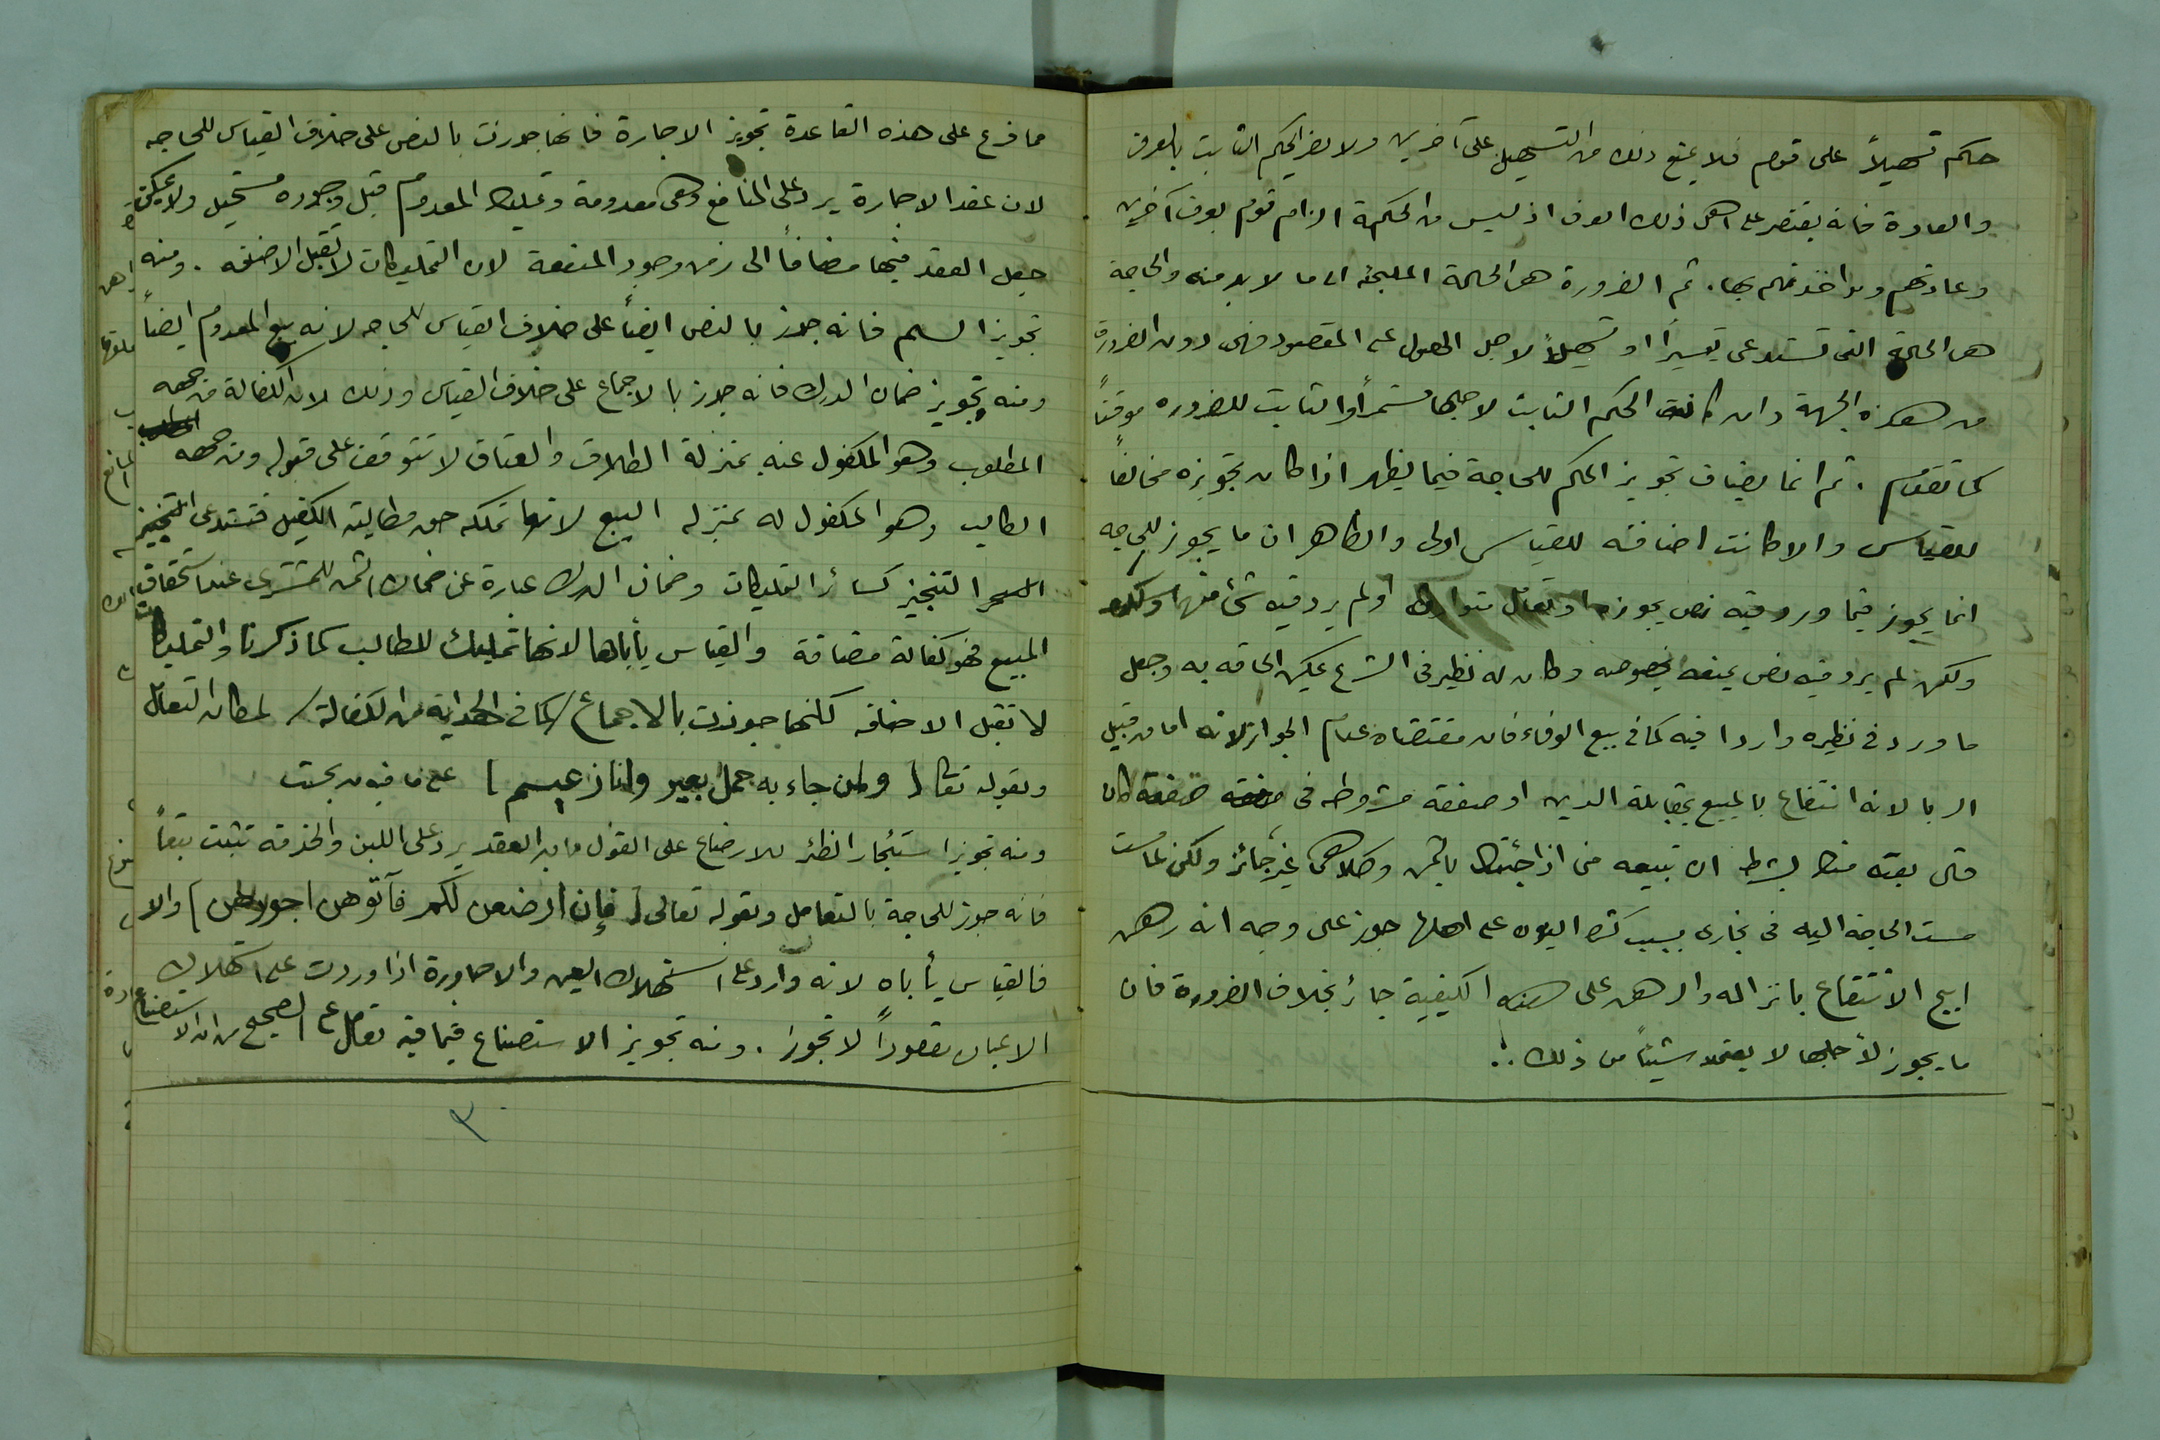 حكم تسهيلاً على قوم فلا يمنع ذلك من التسهيل على آخرين ولا يضر الحكم الثابت بالعرف
والعادة فانه يقتصر على اهل ذلك العرف اذ ليس من الحكمة الزام قوم بعرف آخرين
وعادتهم ومواخذتهم بها. ثم الضرورة هى الحالة الملجئة الى ما لا بد منه والحاجة
هى الحالة التى تستدعى تيسيراً او تسهيلاً لاجل الحصول على المقصود فهى دون الضرورة
من هذه الجهة وان كانت الحكم الثابت لاجلها مستمراً والثابت للضروره موقتاً
كما تقدم. ثم انما يضاف تجويز الحكم للحاجة فيما يظهر اذا كان تجويزه مخالفاً
للقياس والا كانت اضافته للقياس اولى والظاهر ان ما يجوز للحاجه
انما يجوز فيما ورد فيه نص يجوزه او تعامل او لم يرد فيه شئ منهما
ولكن لم يرد فيه نص يمنعه بخصوصه وكان له نظير فى الشرع يمكن الحاقه به وجعل
ما ورد فى نظيره واردا فيه كما فى بيع الوفاء فان مقتضاه عدم الجواز لانه اما من قبيل
الربا لانه انتفاع بالمبيع بمقابلة الدين او صفقة مشروطه فى صفقه كان
قال بعته منك بشرط ان تبيعه منى اذا جئتك بالثمن وكلاهما غير جائز ولكن لما مست
مست الحاجة اليه فى بخارى بسبب كثرة الديون على اهلها جوز على وجه انه رهن
ابيح الانتفاع بانزاله والرهن على هذه الكيفية جائز بخلاف الضرورة فان
ما يجوز لأجلها لا يعتمد شيئاً من ذلك.
مما فرع على هذه القاعدة تجويز الاجارة فانها جوزت بالنص على خلاف القياس للحاجه
لان عقد الاجارة يرد على المنافع وهى معدومة وتمليك المعدوم قبل وجوده مستحيل ولا يمكن
جعل العقد فيها مضافاً الى زمن وجود المنفعة لان التمليكات لا تقبل الاضافه. ومنه
تجويز السلم فانه جوز بالنص ايضاً على خلاف القياس للحاجه لانه بيع المعدوم ايضاً
ومنه تجويز ضمان الدرك فانه جوز بالاجماع على خلاف القياس وذلك لان الكفالة من جهه
المطلوب وهو المكفول عنه بمنزلة الطلاق والعتاق لا تتوقف على قبوله ومن جهه
الطالب وهو المكفول له بمنزله البيع لانها تملكه حق مطالبة الكفيل فتستدعى التنجيز
التنجيز كسائر التمليكات وضمان الدرك عبارة عن ضمان الثمن للمشترى عند استحقاق
المبيع فهو كفالة مضافة والقياس يأباها لانها تمليك للطالب كما ذكرنا والتمليكات
لا تقبل الاضافه لكنها جوزت بالاجماع /كما فى الهداية من الكفالة/ لمكان التعامل
وبقوله تعالى ( ولمن جاء به حمل بعير وانا زعيم ) على ما فيه من بحث
ومنه تجويز استئجار الظئر للارضاع على القول بان العقد يرد على اللبن والخدمة تثبت تبعاً
فانه جوز للحاجة بالتعامل وبقوله تعالى ( فإن ارضعن لكم فآتوهن اجورهن ) والا
فالقياس يأباه لانه وارد على استهلاك العين والاجارة اذا وردت على استهلاك
الاعيان مقصوداً لا تجوز. ومنه تجويز الاستصناع فيما فيه تعامل على الصحيح من ان الاستصناع
٣